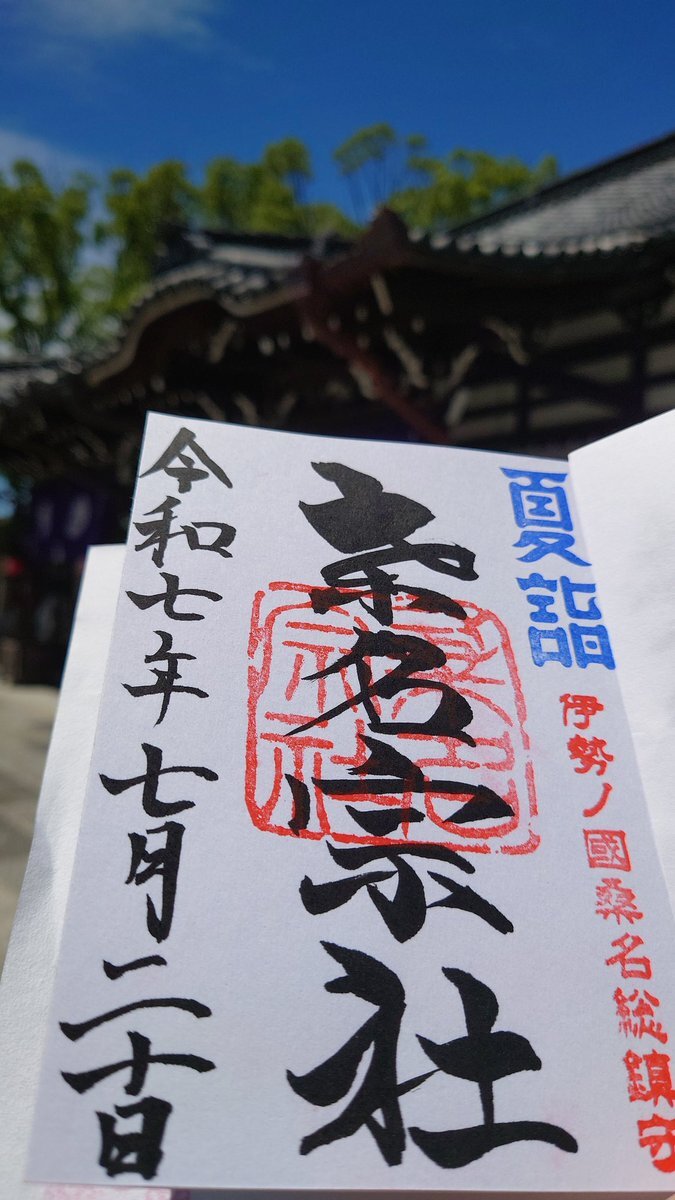 夏詣
伊勢ノ國桑名総鎮守
桑名宗社
令和七年七月二十日